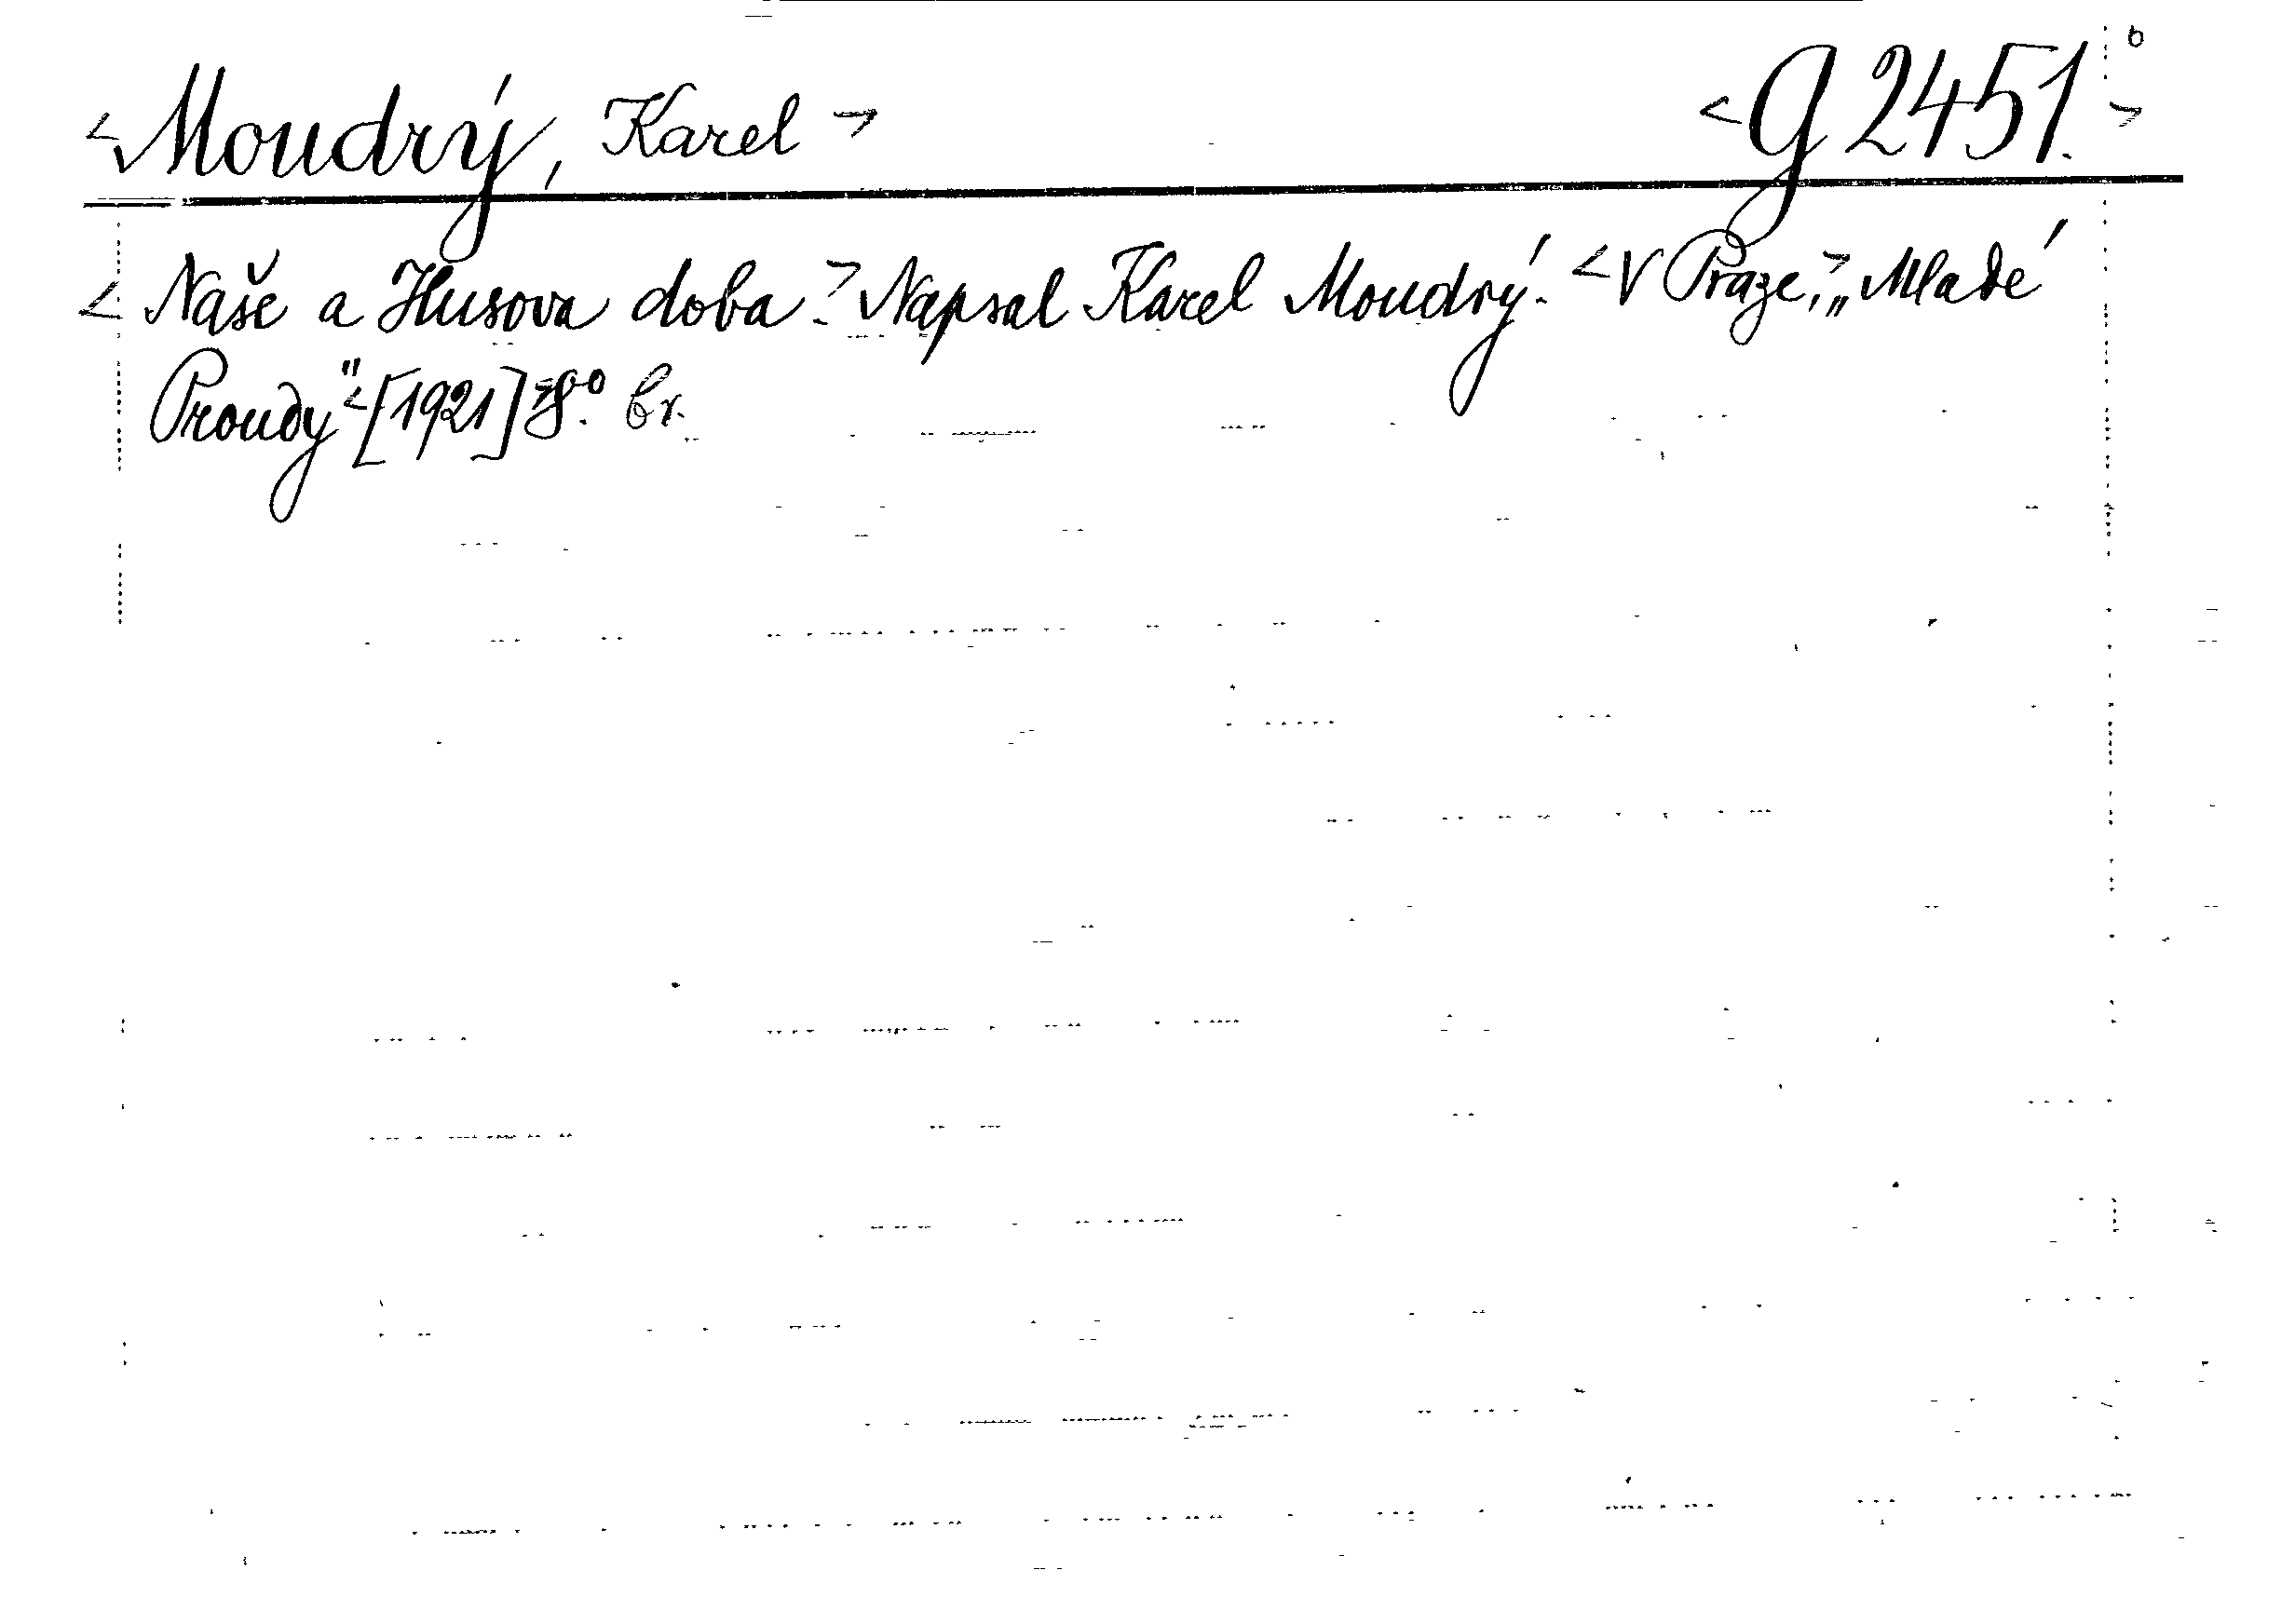 <Moudrý, Karel> <G 2451.>
<Naše a Husova doba.> Napsal Karel Moudrý. <V Praze,> „Mladé
Proudy" <[1921]> 8.° br.